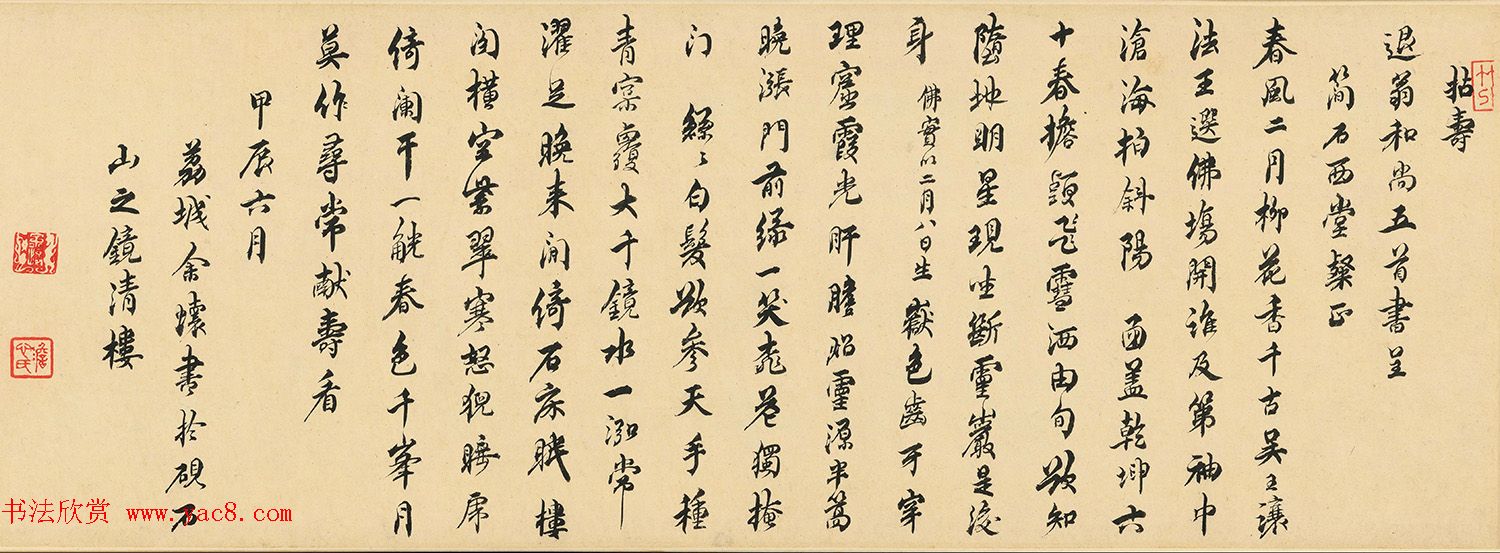 拈壽
退翁和尚五首書呈
簡石西堂粲正
春風二月柳花香千古吳王讓
法王選佛場開誰及第袖中
滄海拍斜陽 函蓋乾坤六
十春擔頭飛雪洒由旬欲知
墮地明星現坐斷靈巖是後
身 佛實以二月八日生 嶽色齒牙宰
理窟霞光肝膽照靈源半篙
曉漲門前綠一笑獨掩
門 白髮欲參天手種
青覆大千鏡水一泓常
濯足晚来閒倚石床眠 樓
閣橫空紫翠寒怒猊睡虎
倚闌干一觥春色千峯月
莫作尋常献壽看
甲辰六月
荔城余懷書於硯石
山之鏡清樓
书法欣赏 www.yac8.com